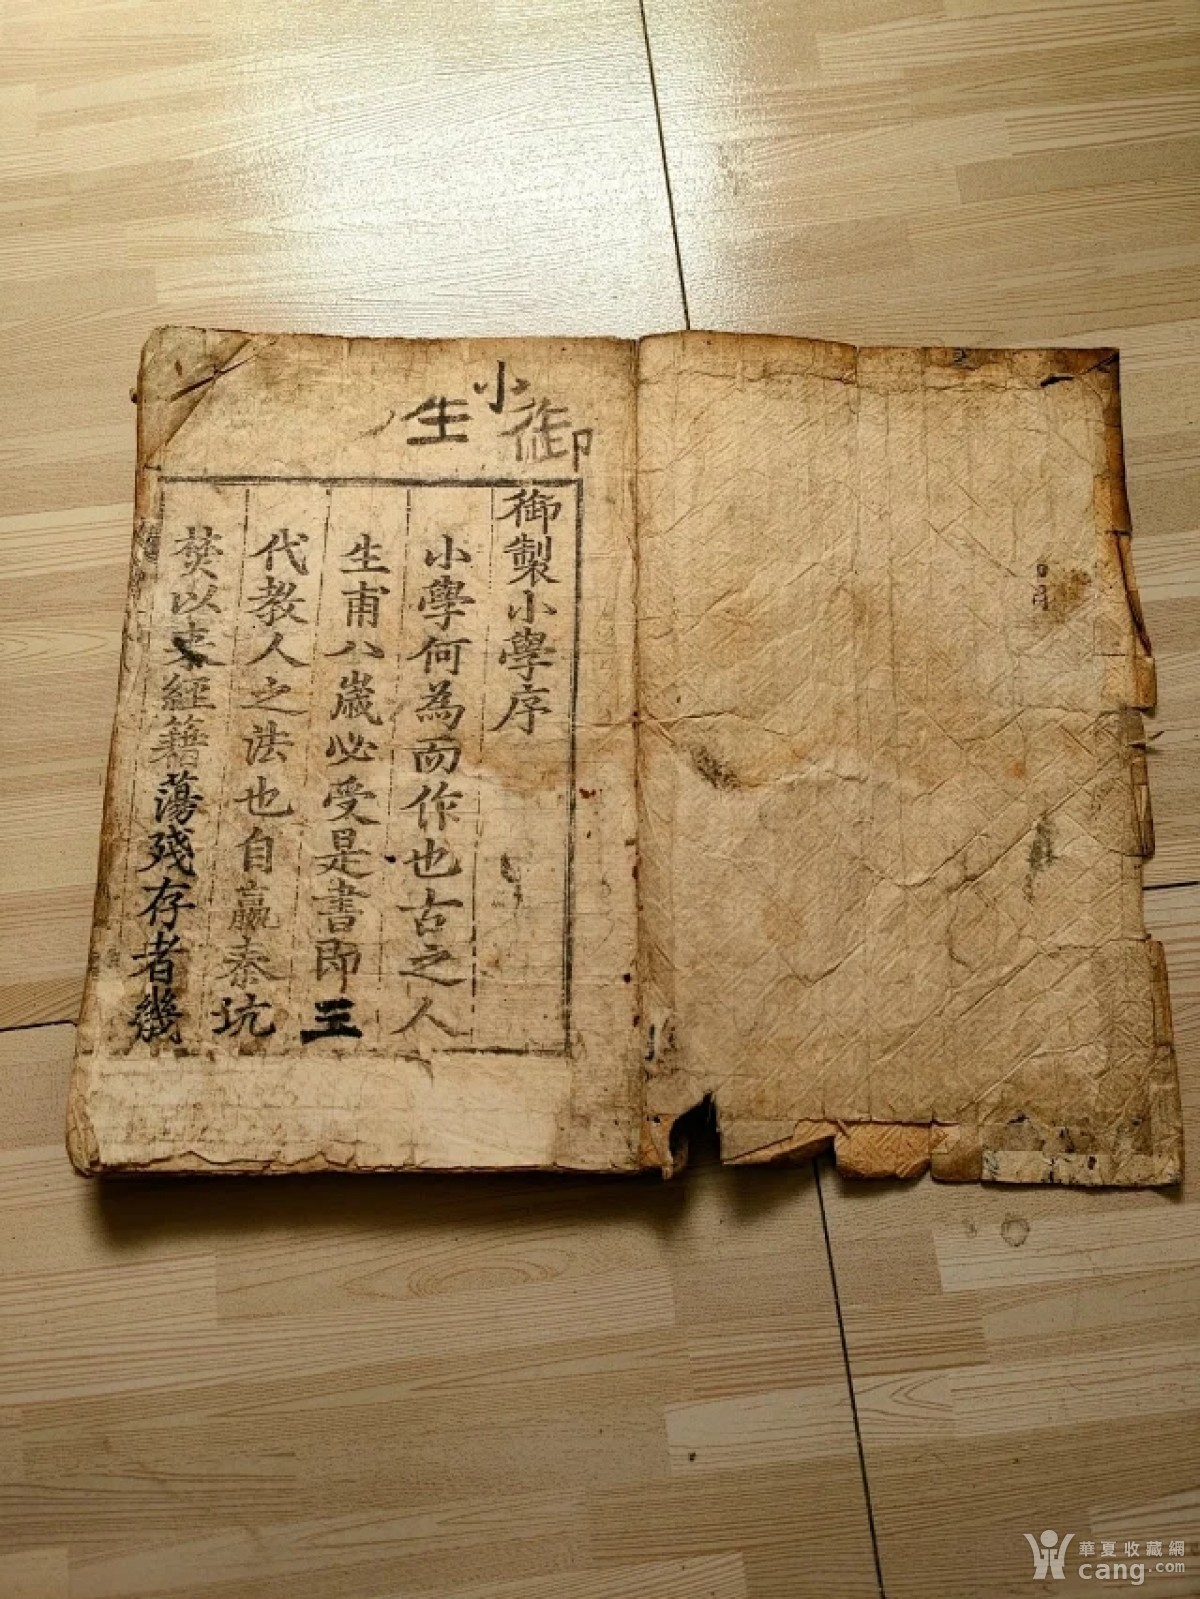 御
小
生
御製小學序
小學何為而作也古之人
生甫八歲必受是書即三
代教人之法也自嬴秦坑
焚以来經籍蕩殘存者幾
華夏收藏網
cang.com